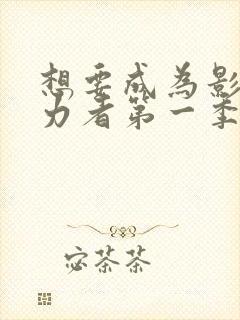 想要成为影
力者第一季
宓茶茶